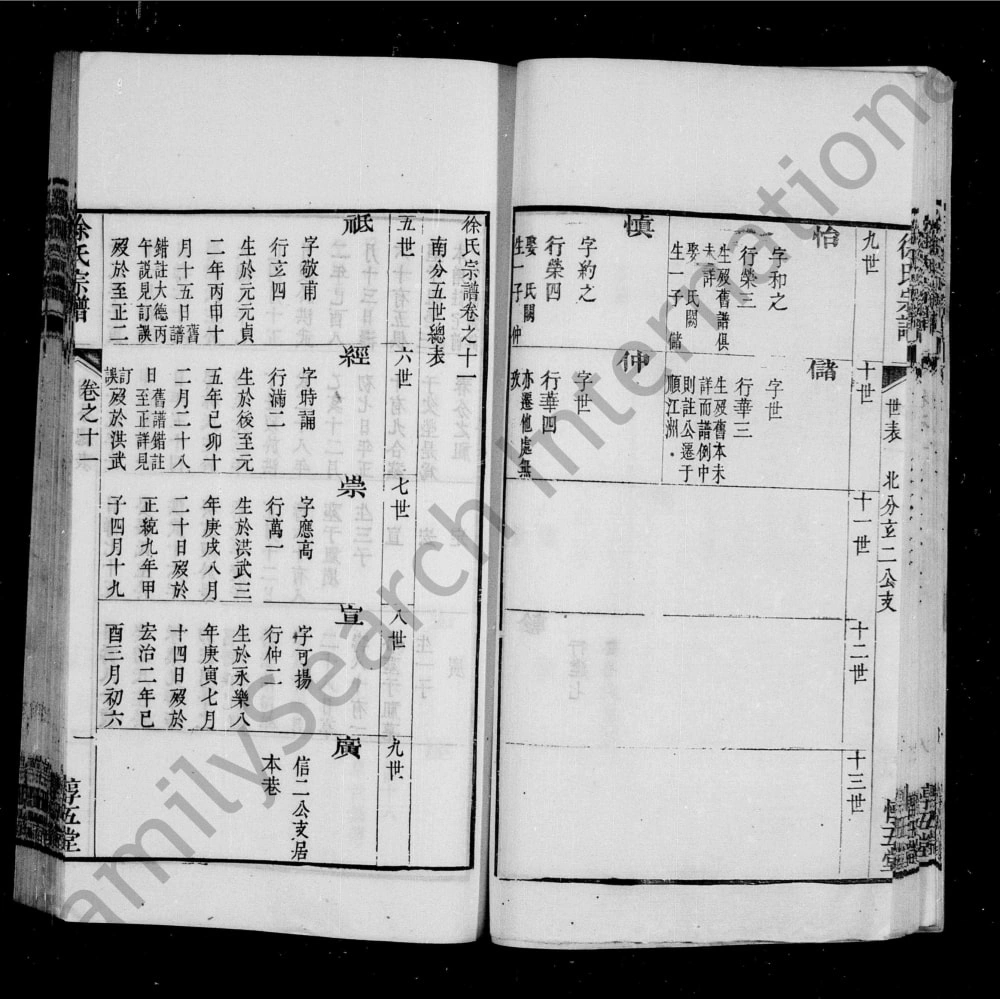 徐氏宗譜
世表
北分玄二公支
惇五堂
九世
十世
十一世
十二世
十三世
怡
字和之
行榮三
生歿舊譜俱
未詳
娶 氏闕
生一子 儲
儲
字世
行華三
生歿舊本未
詳而譜例中
則註公遷于
順江洲
慎
字約之
行榮四
娶 氏闕
生一子 仲
仲
字世
行華四
亦遷他處無
攷
徐氏宗譜卷之十一
南分五世總表
五世
六世
七世
八世
九世
祗
字敬甫
行玄四
生於元元貞
二年丙申十
月十五日舊譜
錯註大德丙
午說見訂誤
歿於至正二
經
字時誦
行滿二
生於後至元
五年己卯十
二月二十八
日舊譜錯註
至正詳見
訂誤歿於洪武
崇
字應高
行萬一
生於洪武三
年庚戌八月
二十日歿於
正統九年甲
子四月十九
宣
字可揚
行仲二
生於永樂八
年庚寅七月
十四日歿於
宏治二年己
酉三月初六
廣
信二公支居
本巷
徐氏宗譜
卷之十一
一
惇五堂
FamilySearch International